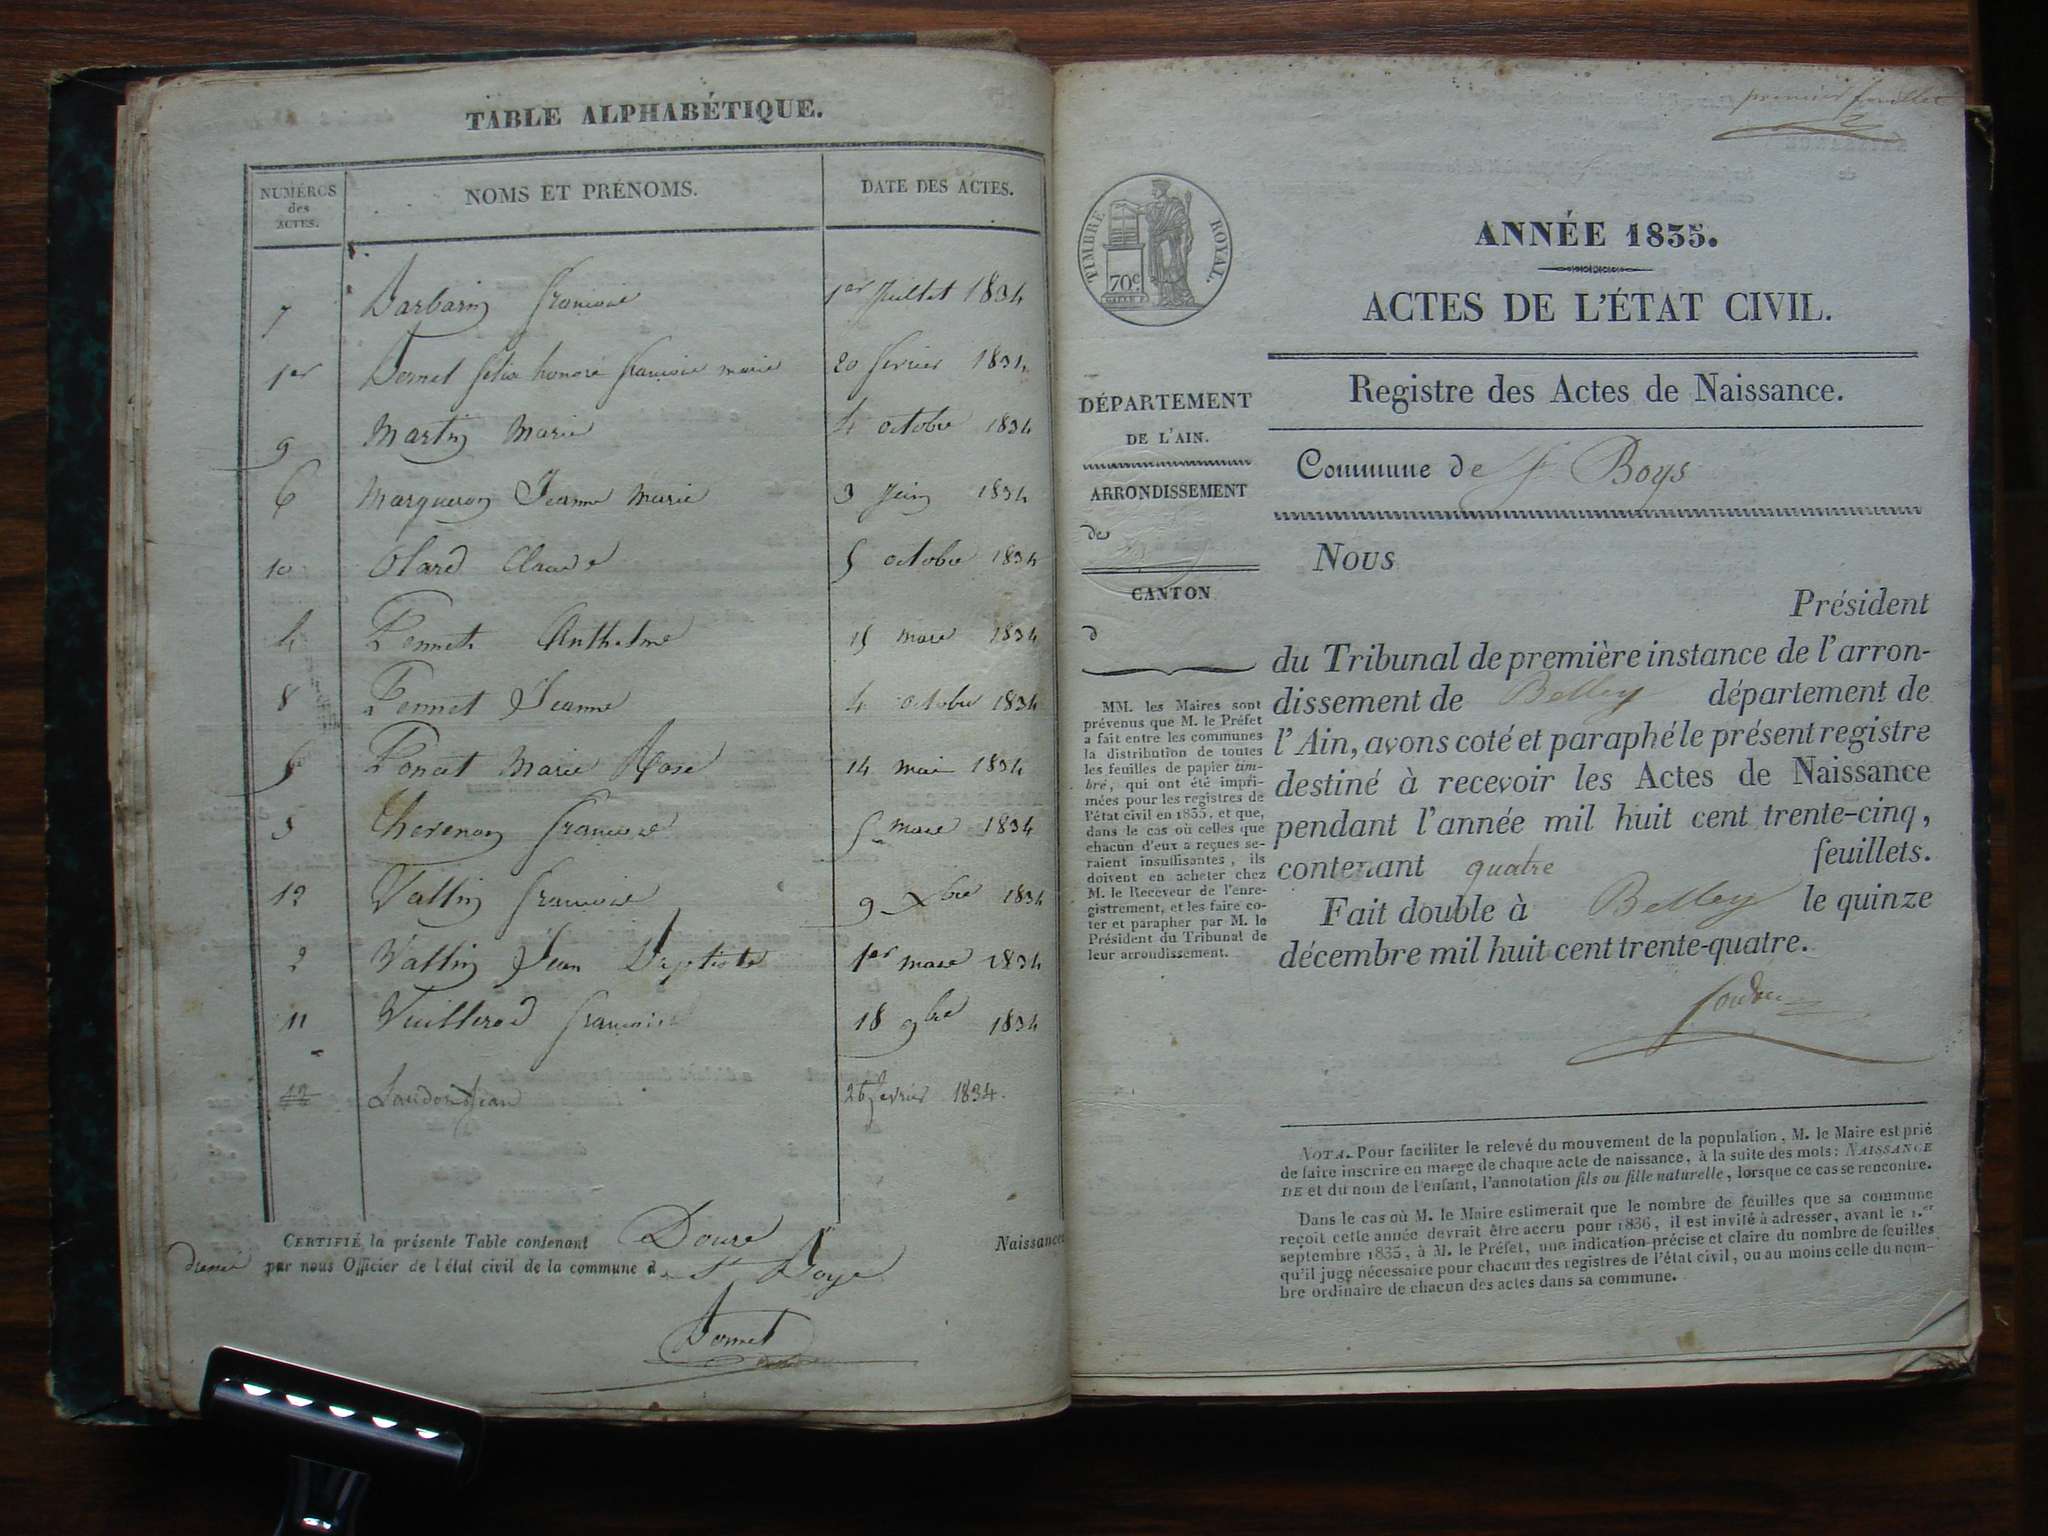 TABLE ALPHABÉTIQUE.
NUMÉROS des ACTES.
NOMS ET PRÉNOMS.
DATE DES ACTES.
7 Barbarin françoise 1er Juillet 1834
1er Dornet felix honoré françois marie 20 fevrier 1834
9 Martin Marie 4 octobre 1834
6 Marqueron Jeanne Marie 3 Juin 1834
10 Olard Claude 5 octobre 1834
4 Anthelme 15 mars 1834
8 Jeanne 4 octobre 1834
5 Poncet Marie Rose 14 mai 1834
3 Thevenon 5 mars 1834
12 Vallin 9 xbre 1834
2 Vallin Jean Baptiste 1er mars 1834
11 Vuillerod 18 9bre 1834
12 Jean 26 fevrier 1834.
CERTIFIÉ la présente Table contenant Douze Naissances
par nous Officier de l'état civil de la commune de St Boys
premier feuillet
TIMBRE ROYAL.
70c
ANNÉE 1835.
ACTES DE L'ÉTAT CIVIL.
Registre des Actes de Naissance.
Commune de St Boys
DÉPARTEMENT
DE L'AIN.
ARRONDISSEMENT
de
CANTON
d
MM. les Maires sont
prévenus que M. le Préfet
a fait entre les communes
la distribution de toutes
les feuilles de papier tim-
bré, qui ont été impri-
mées pour les registres de
l'état civil en 1835, et que,
dans le cas où celles que
chacun d'eux a reçues se-
raient insuffisantes, ils
doivent en acheter chez
M. le Receveur de l'enre-
gistrement, et les faire co-
ter et parapher par M. le
Président du Tribunal de
leur arrondissement.
Nous
Président
du Tribunal de première instance de l'arron-
dissement de Belley département de
l'Ain, avons coté et paraphé le présent registre
destiné à recevoir les Actes de Naissance
pendant l'année mil huit cent trente-cinq,
contenant quatre feuillets.
Fait double à Belley le quinze
décembre mil huit cent trente-quatre.
NOTA. Pour faciliter le relevé du mouvement de la population, M. le Maire est prié
de faire inscrire en marge de chaque acte de naissance, à la suite des mots: NAISSANCE
DE et du nom de l'enfant, l'annotation fils ou fille naturelle, lorsque ce cas se rencontre.
Dans le cas où M. le Maire estimerait que le nombre de feuilles que sa commune
reçoit cette année devrait être accru pour 1836, il est invité à adresser, avant le 1.er
septembre 1835, à M. le Préfet, une indication précise et claire du nombre de feuilles
qu'il juge nécessaire pour chacun des registres de l'état civil, ou au moins celle du nom-
bre ordinaire de chacun des actes dans sa commune.